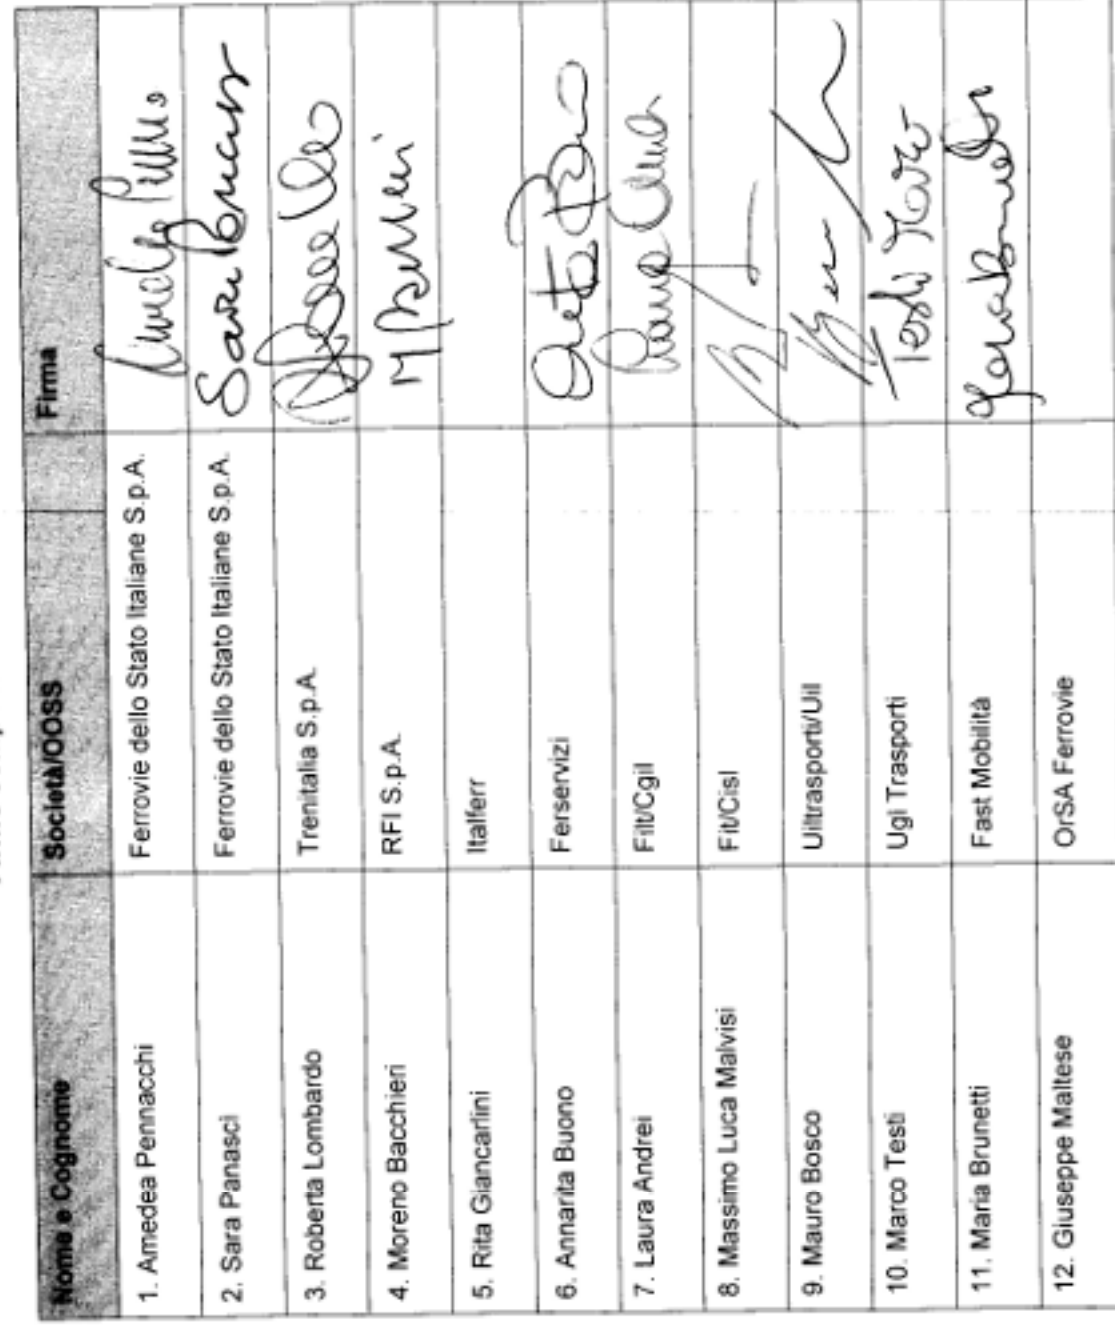 Nome e Cognome Società/OOSS Firma
1. Amedea Pennacchi Ferrovie dello Stato Italiane S.p.A.
2. Sara Panasci Ferrovie dello Stato Italiane S.p.A. Sara Panasci
3. Roberta Lombardo Trenitalia S.p.A.
4. Moreno Bacchieri RFI S.p.A. M Bacchieri
5. Rita Giancarlini Italferr
6. Annarita Buono Ferservizi
7. Laura Andrei Filt/Cgil Laura Andrei
8. Massimo Luca Malvisi Fit/Cisl
9. Mauro Bosco Uiltrasporti/Uil
10. Marco Testi Ugl Trasporti Testi Marco
11. Maria Brunetti Fast Mobilità
12. Giuseppe Maltese OrSA Ferrovie